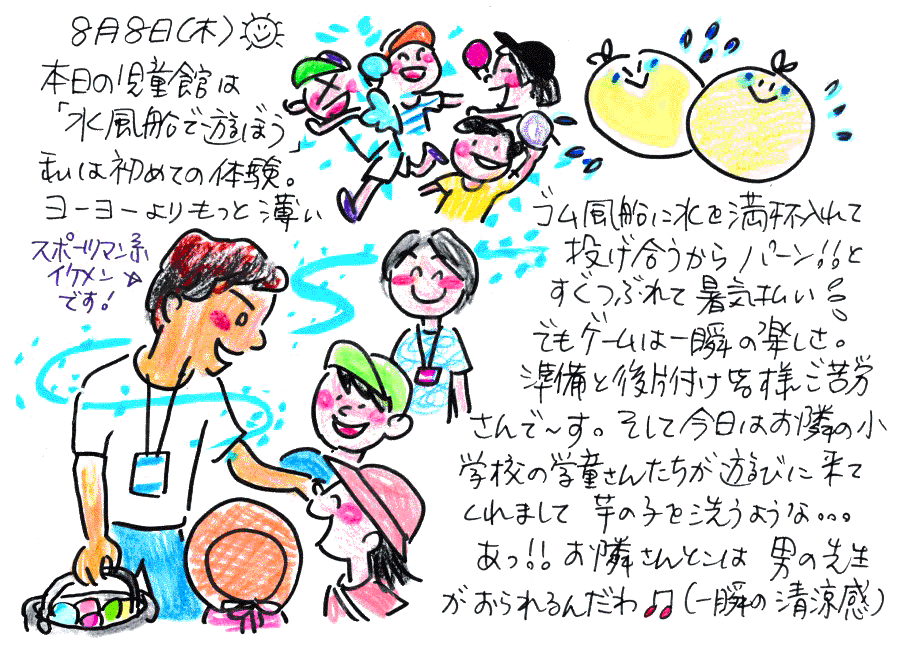 8月8日(木)
本日の児童館は
「水風船で遊ぼう」
私は初めての体験。
ヨーヨーよりもっと薄い
ゴム風船に水を満杯入れて
投げ合うから パーン!!と
すぐつぶれて 暑気払い
でもゲームは一瞬の楽しさ。
準備と後片付け皆様ご苦労
さんで〜す。そして今日はお隣の小
学校の学童さんたちが遊びに来て
くれまして 芋の子を洗うような...
あっ!! お隣さんとこは 男の先生
がおられるんだわ♫(一瞬の清涼感)
スポーツマン系
イケメン☆
です!